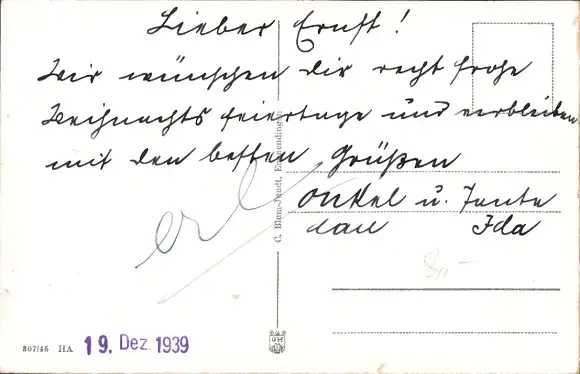 Lieber Ernst!
Wir wünschen dir recht frohe
Weihnachts feiertage und verbleiben
mit den besten Grüßen
Onkel u. Tante
Ida
C. Blum-Jundt, Emmendingen
307/45 HA
19. Dez. 1939